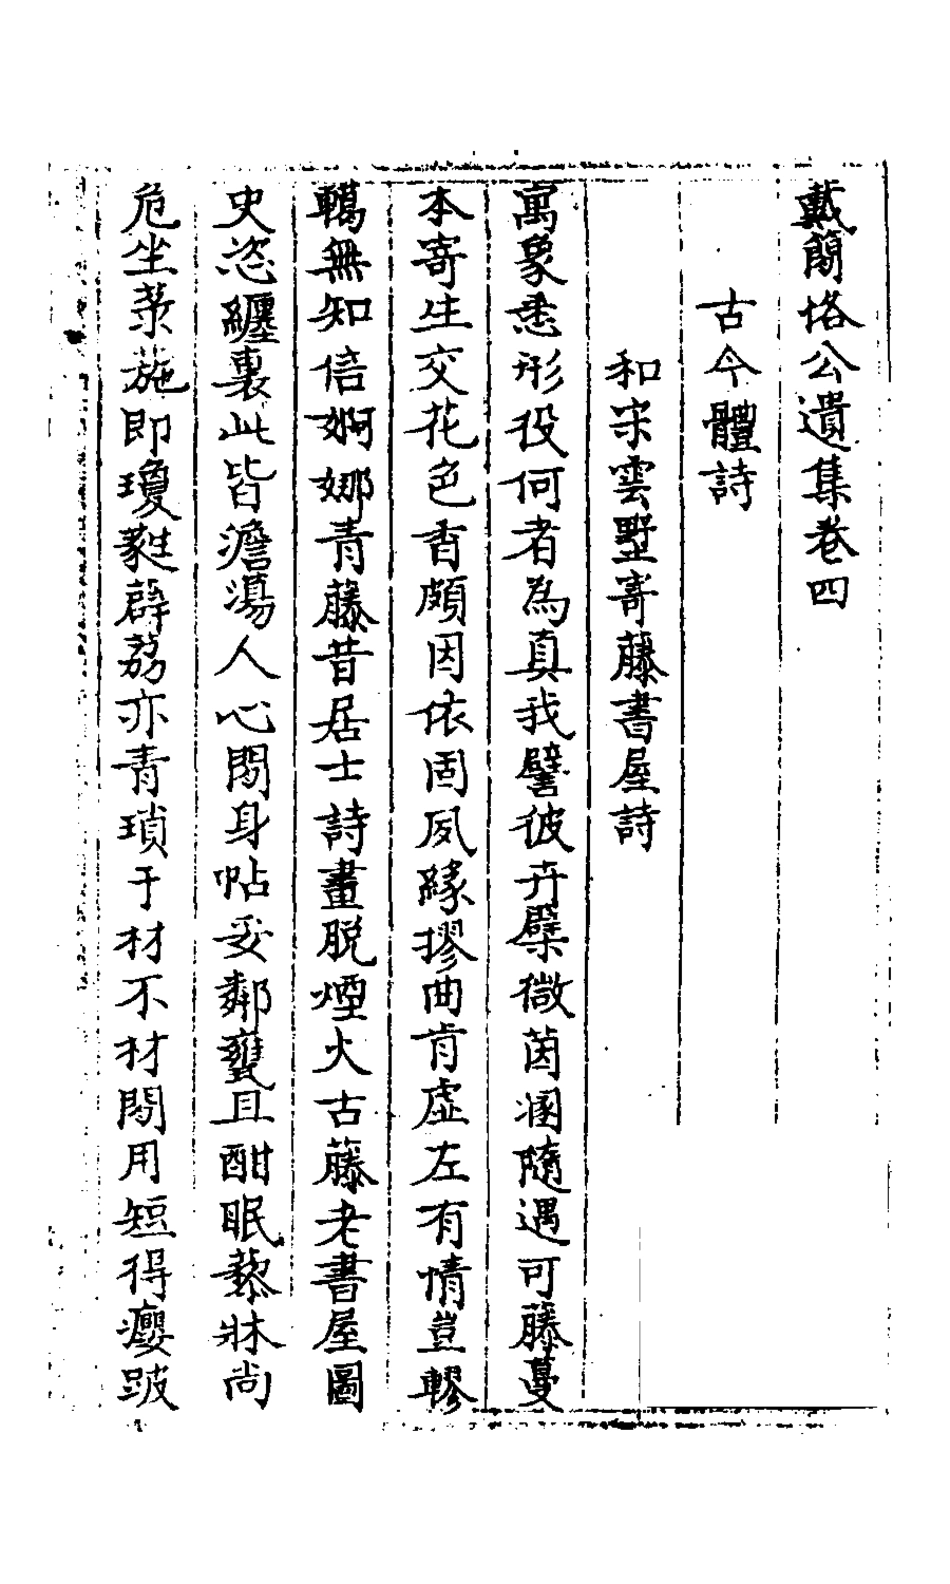 戴簡恪公遺集卷四
古今體詩
和宋雲墅寄藤書屋詩
寓象悉形役何者為真我譬彼卉櫱微茵溷隨遇可藤蔓
本寄生交花色香頗因依固夙緣摎曲肯虛左有情豈轇
轕無知信婀娜青藤昔居士詩畫脫煙火古藤老書屋圖
史恣纏裹此皆澹蕩人心閒身帖妥鄰甕且酣眠藜牀尚
危坐菉葹即瓊蕤薜荔亦青瑣于材不材閒用短得癭跛